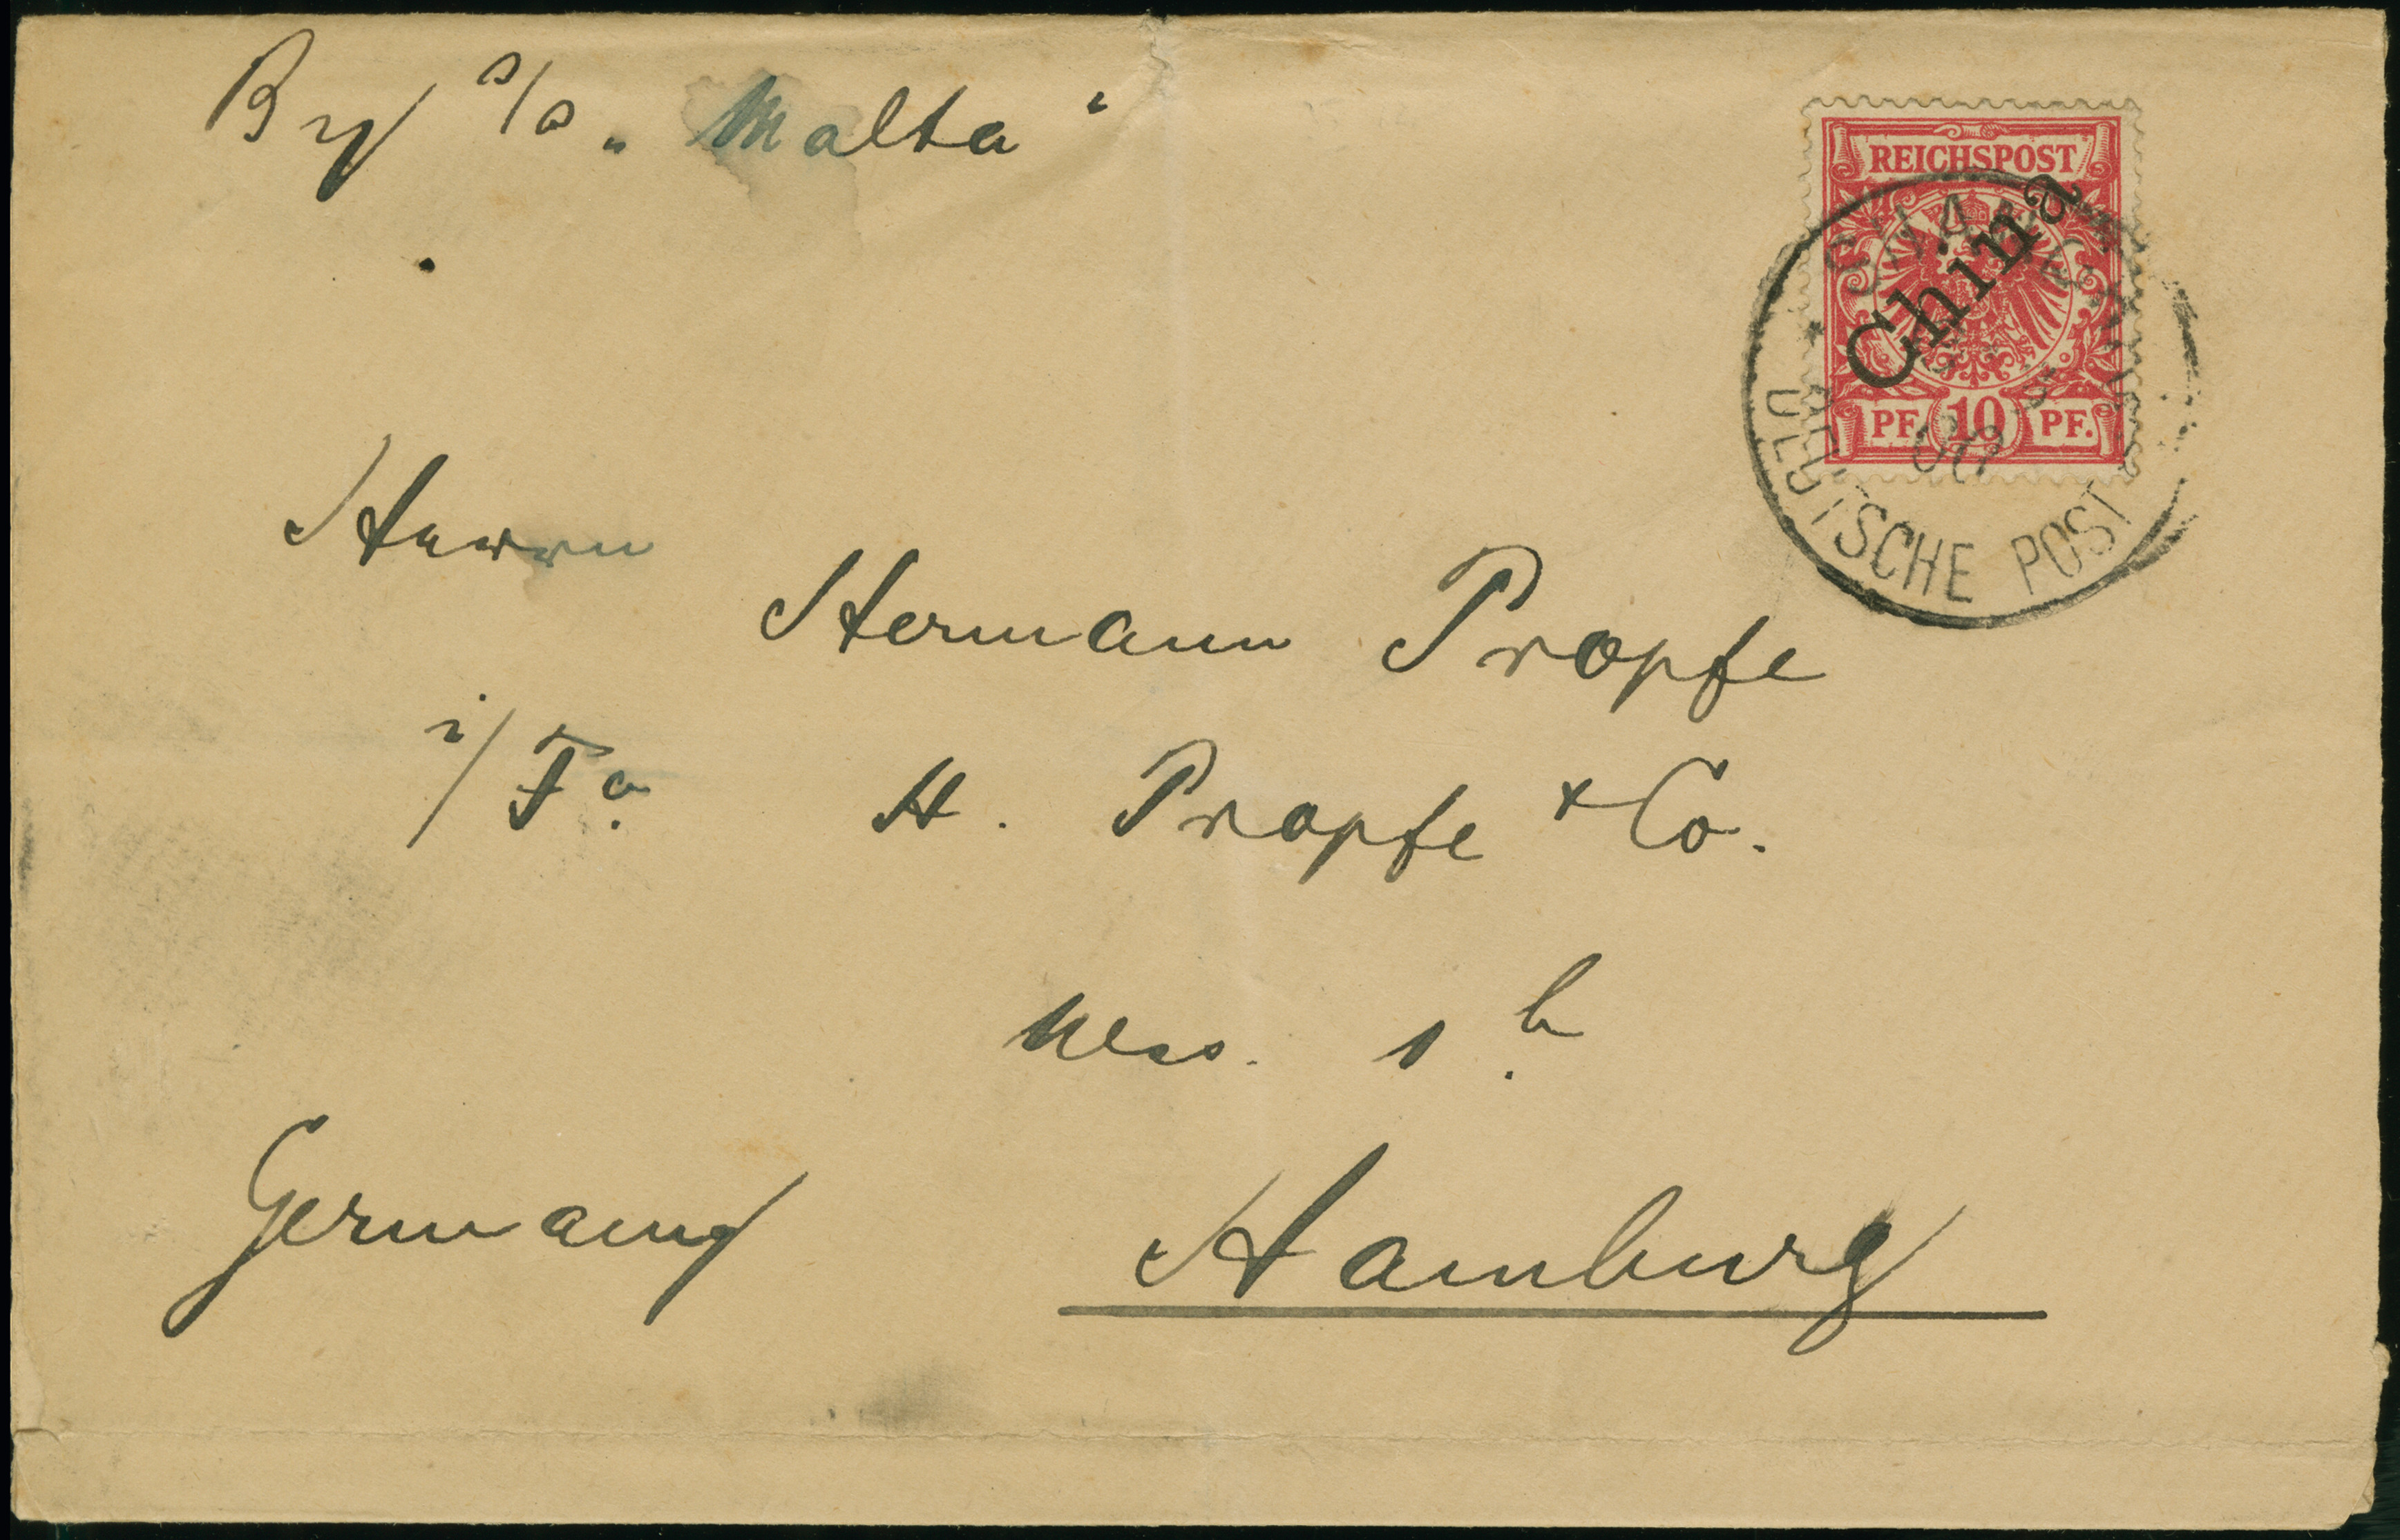 By s/s „Malta"
REICHSPOST
China
PF. 10 PF.
SHANGHAI
DEUTSCHE POST
Herrn
Hermann Propfe
i/Fa. H. Propfe & Co.
1 b.
Germany Hamburg